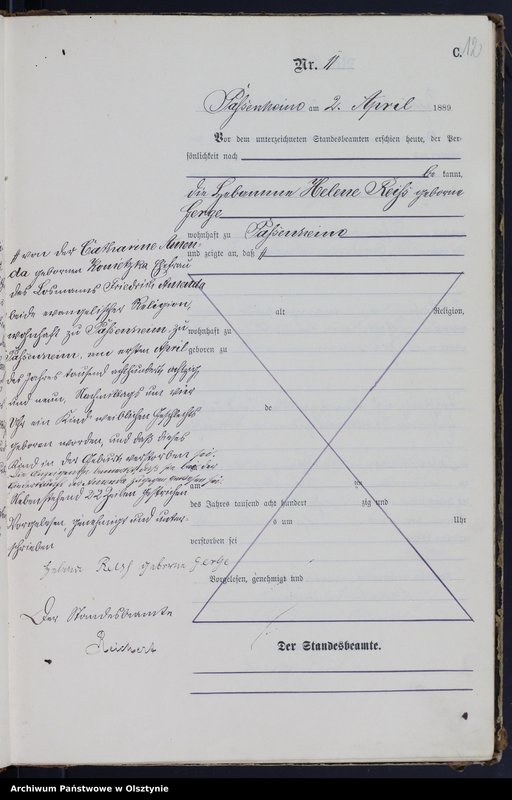 C.
12
Nr. 11
Passenheim am 2. April 1889
Vor dem unterzeichneten Standesbeamten erschien heute, der Per-
sönlichkeit nach
be kannt,
die Hebamme Helene Reiß geborne
Gerge
wohnhaft zu Passenheim
und zeigte an, daß
von der Catharine Anen-
da geborenen Konietzka Ehefrau
des Losmanns Friedrich
beide evangelischer Religion,
wohnhaft zu Passenheim, zu
Passenheim, am ersten April
des Jahres tausend achthundert achtzig
und neun, Nachmittags um vier
Uhr ein Kind weiblichen Geschlechts
geboren worden, und daß dieses
Kind in der Geburt verstorben sei.
Nebenstehend 22 Zeilen gestrichen
Vorgelesen, genehmigt und unter-
schrieben
Helene Reiß geborne Gerge
Der Standesbeamte
Reichert
alt Religion,
wohnhaft zu
geboren zu
de
am te
des Jahres tausend acht hundert zig und
s um Uhr
verstorben sei
Vorgelesen, genehmigt und
Der Standesbeamte.
Archiwum Państwowe w Olsztynie